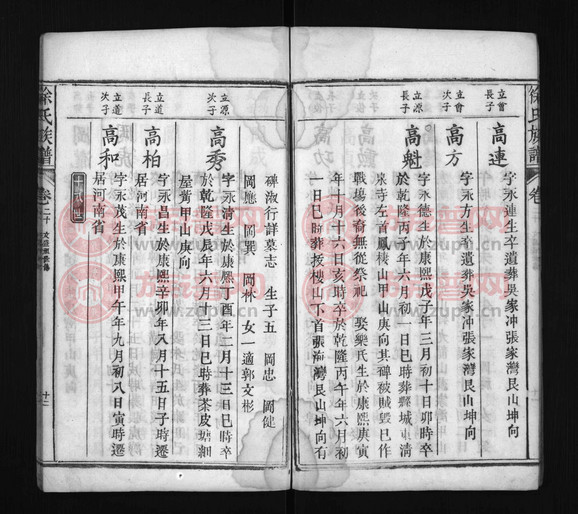 徐氏族譜
立首長子
高連
字永連生卒遺葬吳家沖張家灣艮山坤向
立會次子
高方
字永方生卒遺葬吳家沖張家灣艮山坤向
立源長子
高魁
字永德生於康熙戊子年三月初十日卯時卒
於乾隆丙子年六月初一日巳時葬
泉寺左首鳳棲山甲山庚向其碑被賊毀巳作
戰場後裔無從祭祀 娶樂氏生於康熙庚寅
年十月十六日亥時卒於乾隆丙午年六月初
一日巳時葬扳棲山下首張海灣艮山坤向有
碑淑行詳墓志 生子五 岡忠 岡健
岡應 岡巽 岡林 女一適郭文彬
立源次子
高秀
字永清生於康熙丁酉年二月十三日巳時卒
於乾隆戊辰年六月十三日巳時葬茶皮塘
屋背甲山庚向
立道長子
高柏
字永昌生於康熙辛卯年八月十五日子時遷
居河南省
立道次子
高和
字永茂生於康熙甲午年九月初八日寅時遷
居河南省
徐氏族譜
卷二十
族譜网
www.zupu.cn